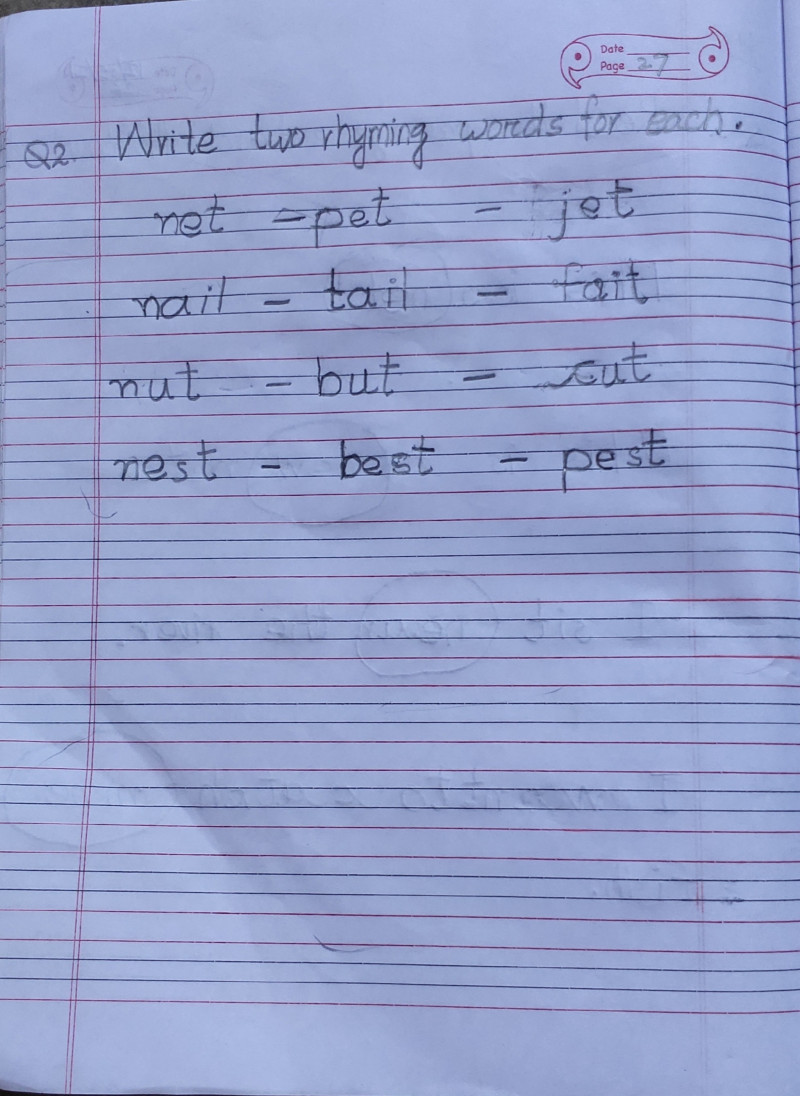 Date
Page 27
Q2. Write two rhyming words for each.
net - pet - jet
nail - tail - fait
nut - but - cut
nest - best - pest